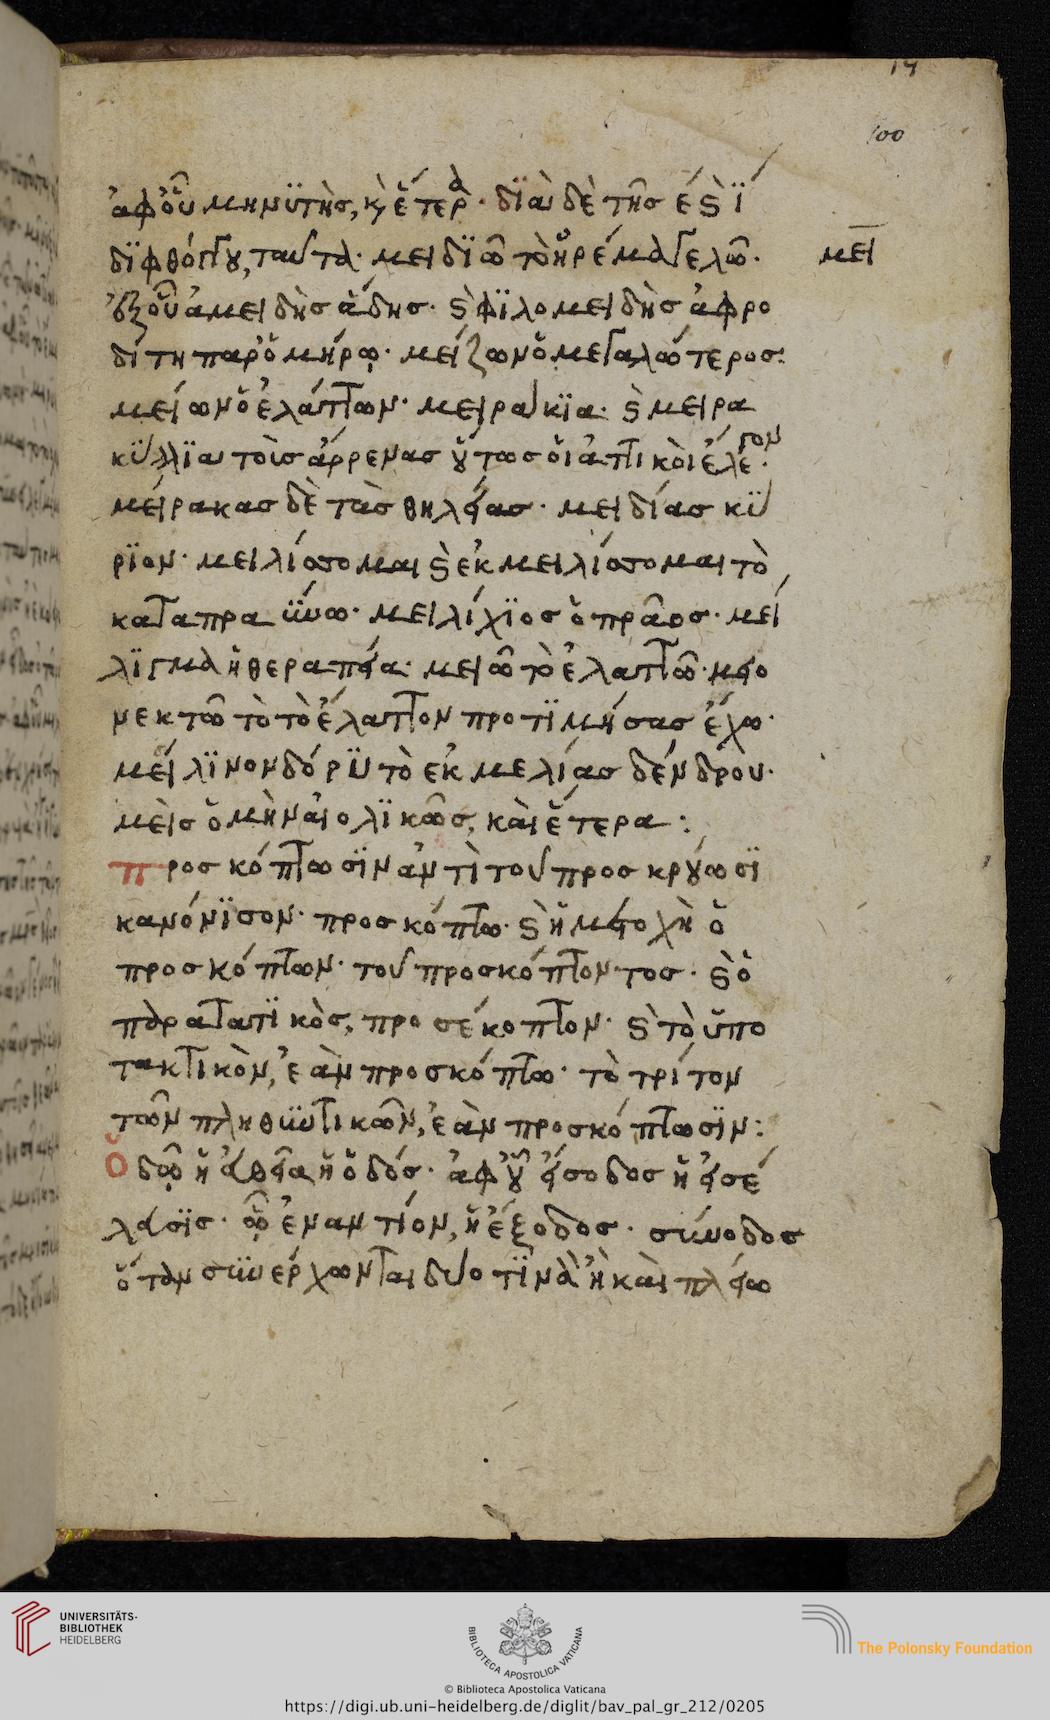 14
100
ἀφ' οὗ μηνϋτὴσ, κ(αὶ) ἕτερα· δϊὰ δὲ τῆσ ε ϛ ϊ
διφθόγγου, ταῦτα· μειδϊῶ τὸ ἠρέμα γελῶ·
μει
ἐξ οὗ ἀμειδὴσ ἅδησ· ϛ φϊλομειδὴσ ἀφρο
δίτη παρ' ὁμήρω· μείζων ὁ μεγαλώτεροσ:
μείων ὁ ἐλάττων· μειράκϊα· ϛ μειρα
κϋλλϊα τοὺσ ἄρρενασ οὕτωσ οἱ ἀττικοὶ ἔλεγον·
μείρακασ δὲ τὰσ θηλείασ· μειδίασ κύ
ρϊον· μειλίσσομαι ϛ ἐκμειλίσσομαι τὸ
καταπραϋνω· μειλίχϊοσ ὁ πρᾶοσ· μεί
λϊγμα ἡ θεραπεία· μειῶ τὸ ἐλαττῶ· μειο
νεκτῶ τὸ τὸ ἔλαττον προτϊμήσασ ἔχω·
μείλϊνον δόρϋ τὸ ἐκ μελίασ δένδρου·
μεὶσ ὁ μὴν αἰολϊκῶσ, καὶ ἕτερα:
προσκόπτωσϊν ἀντὶ τοῦ προσκρούωσϊ
κανόνϊσον· προσκόπτω· ϛ ἡ μετοχὴ ὁ
προσκόπτων· τοῦ προσκόπτοντοσ· ϛ ὁ
παρατατϊκὸσ, προσέκοπτον· ϛ τὸ ὑπο
τακτικὸν, ἐὰν προσκόπτω· τὸ τρίτον
τῶν πληθϋντικῶν, ἐὰν προσκόπτωσϊν:
ὁδῶ ἡ εὐθεῖα ἡ ὁδόσ· ἀφ' οὗ εἴσοδοσ ἡ εἰσέ
λασϊσ· ὧ ἐναντίον, ἡ ἔξοδοσ· σύνοδοσ
ὅταν σϋνέρχωνται δύο τϊνὰ ἢ καὶ πλείω
UNIVERSITÄTS-
BIBLIOTHEK
HEIDELBERG
BIBLIOTECA APOSTOLICA VATICANA
The Polonsky Foundation
© Biblioteca Apostolica Vaticana
https://digi.ub.uni-heidelberg.de/diglit/bav_pal_gr_212/0205